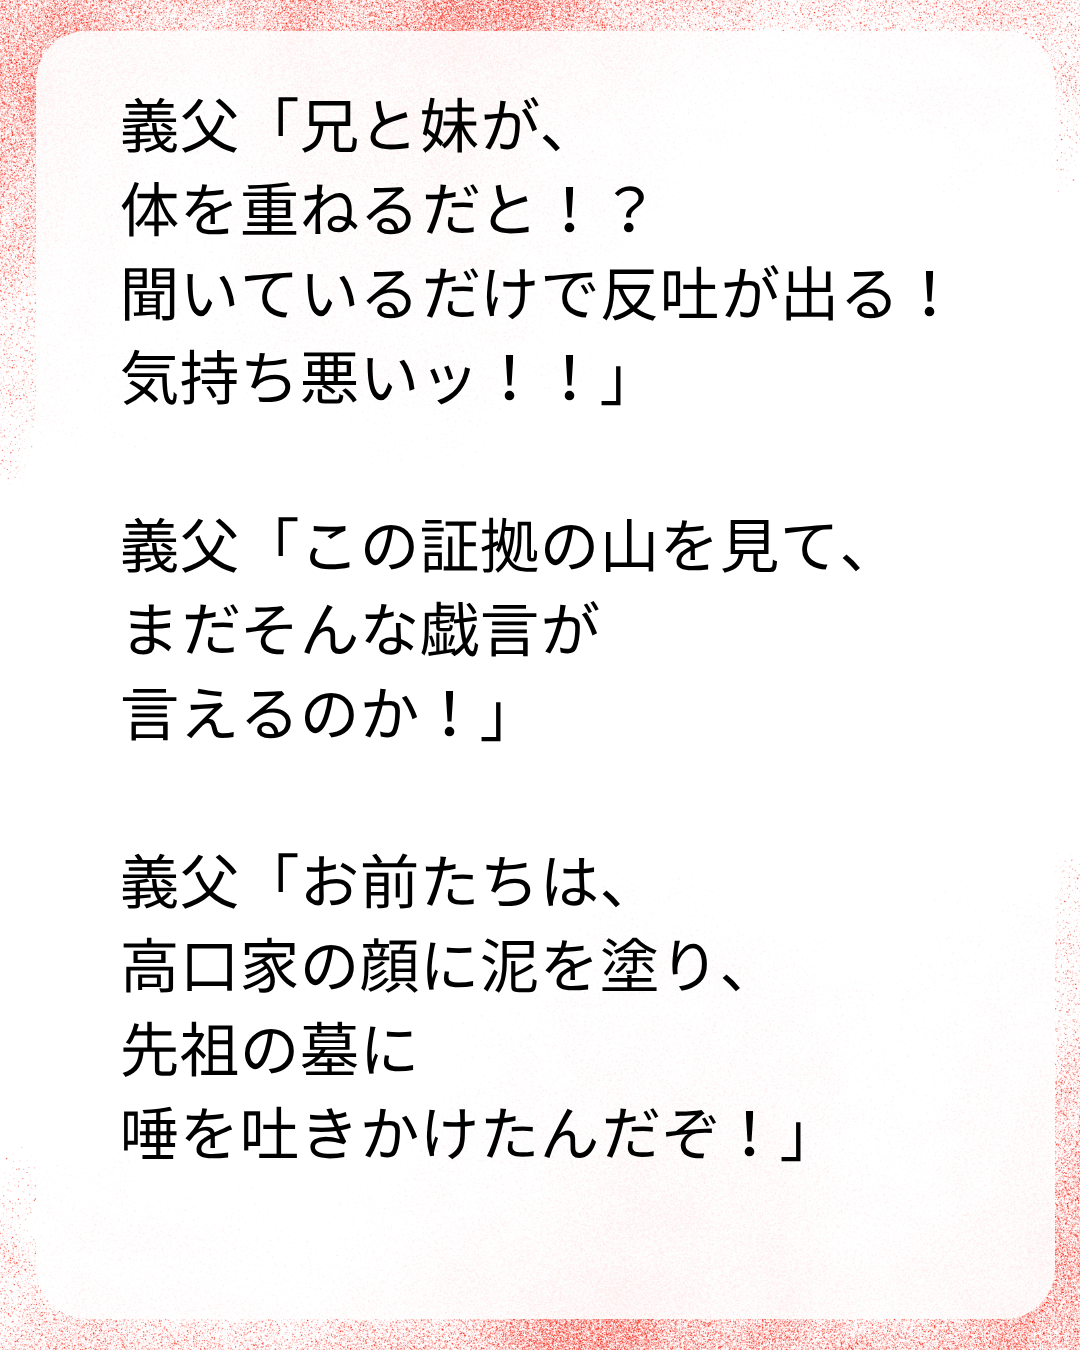 義父「兄と妹が、
体を重ねるだと！？
聞いているだけで反吐が出る！
気持ち悪いッ！！」
義父「この証拠の山を見て、
まだそんな戯言が
言えるのか！」
義父「お前たちは、
高口家の顔に泥を塗り、
先祖の墓に
唾を吐きかけたんだぞ！」